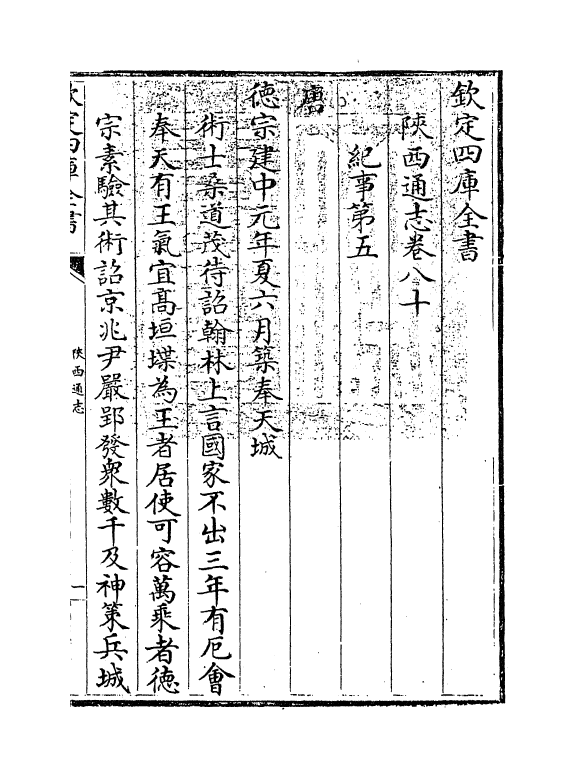 欽定四庫全書
陝西通志卷八十
紀事第五
唐
德宗建中元年夏六月築奉天城
術士桑道茂待詔翰林上言國家不出三年有厄會
奉天有王氣宜髙垣堞為王者居使可容萬乘者德
宗素驗其術詔京兆尹嚴郢發衆數千及神策兵城
欽定四庫全書
陝西通志
一